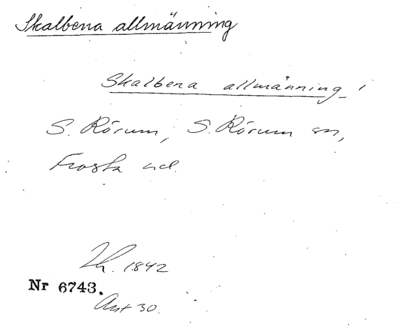 Skalbena allmänning
Skalbena allmänning
S. Rörum, S. Rörum sn,
Frosta hd.
1842
Nr 6743.
30.